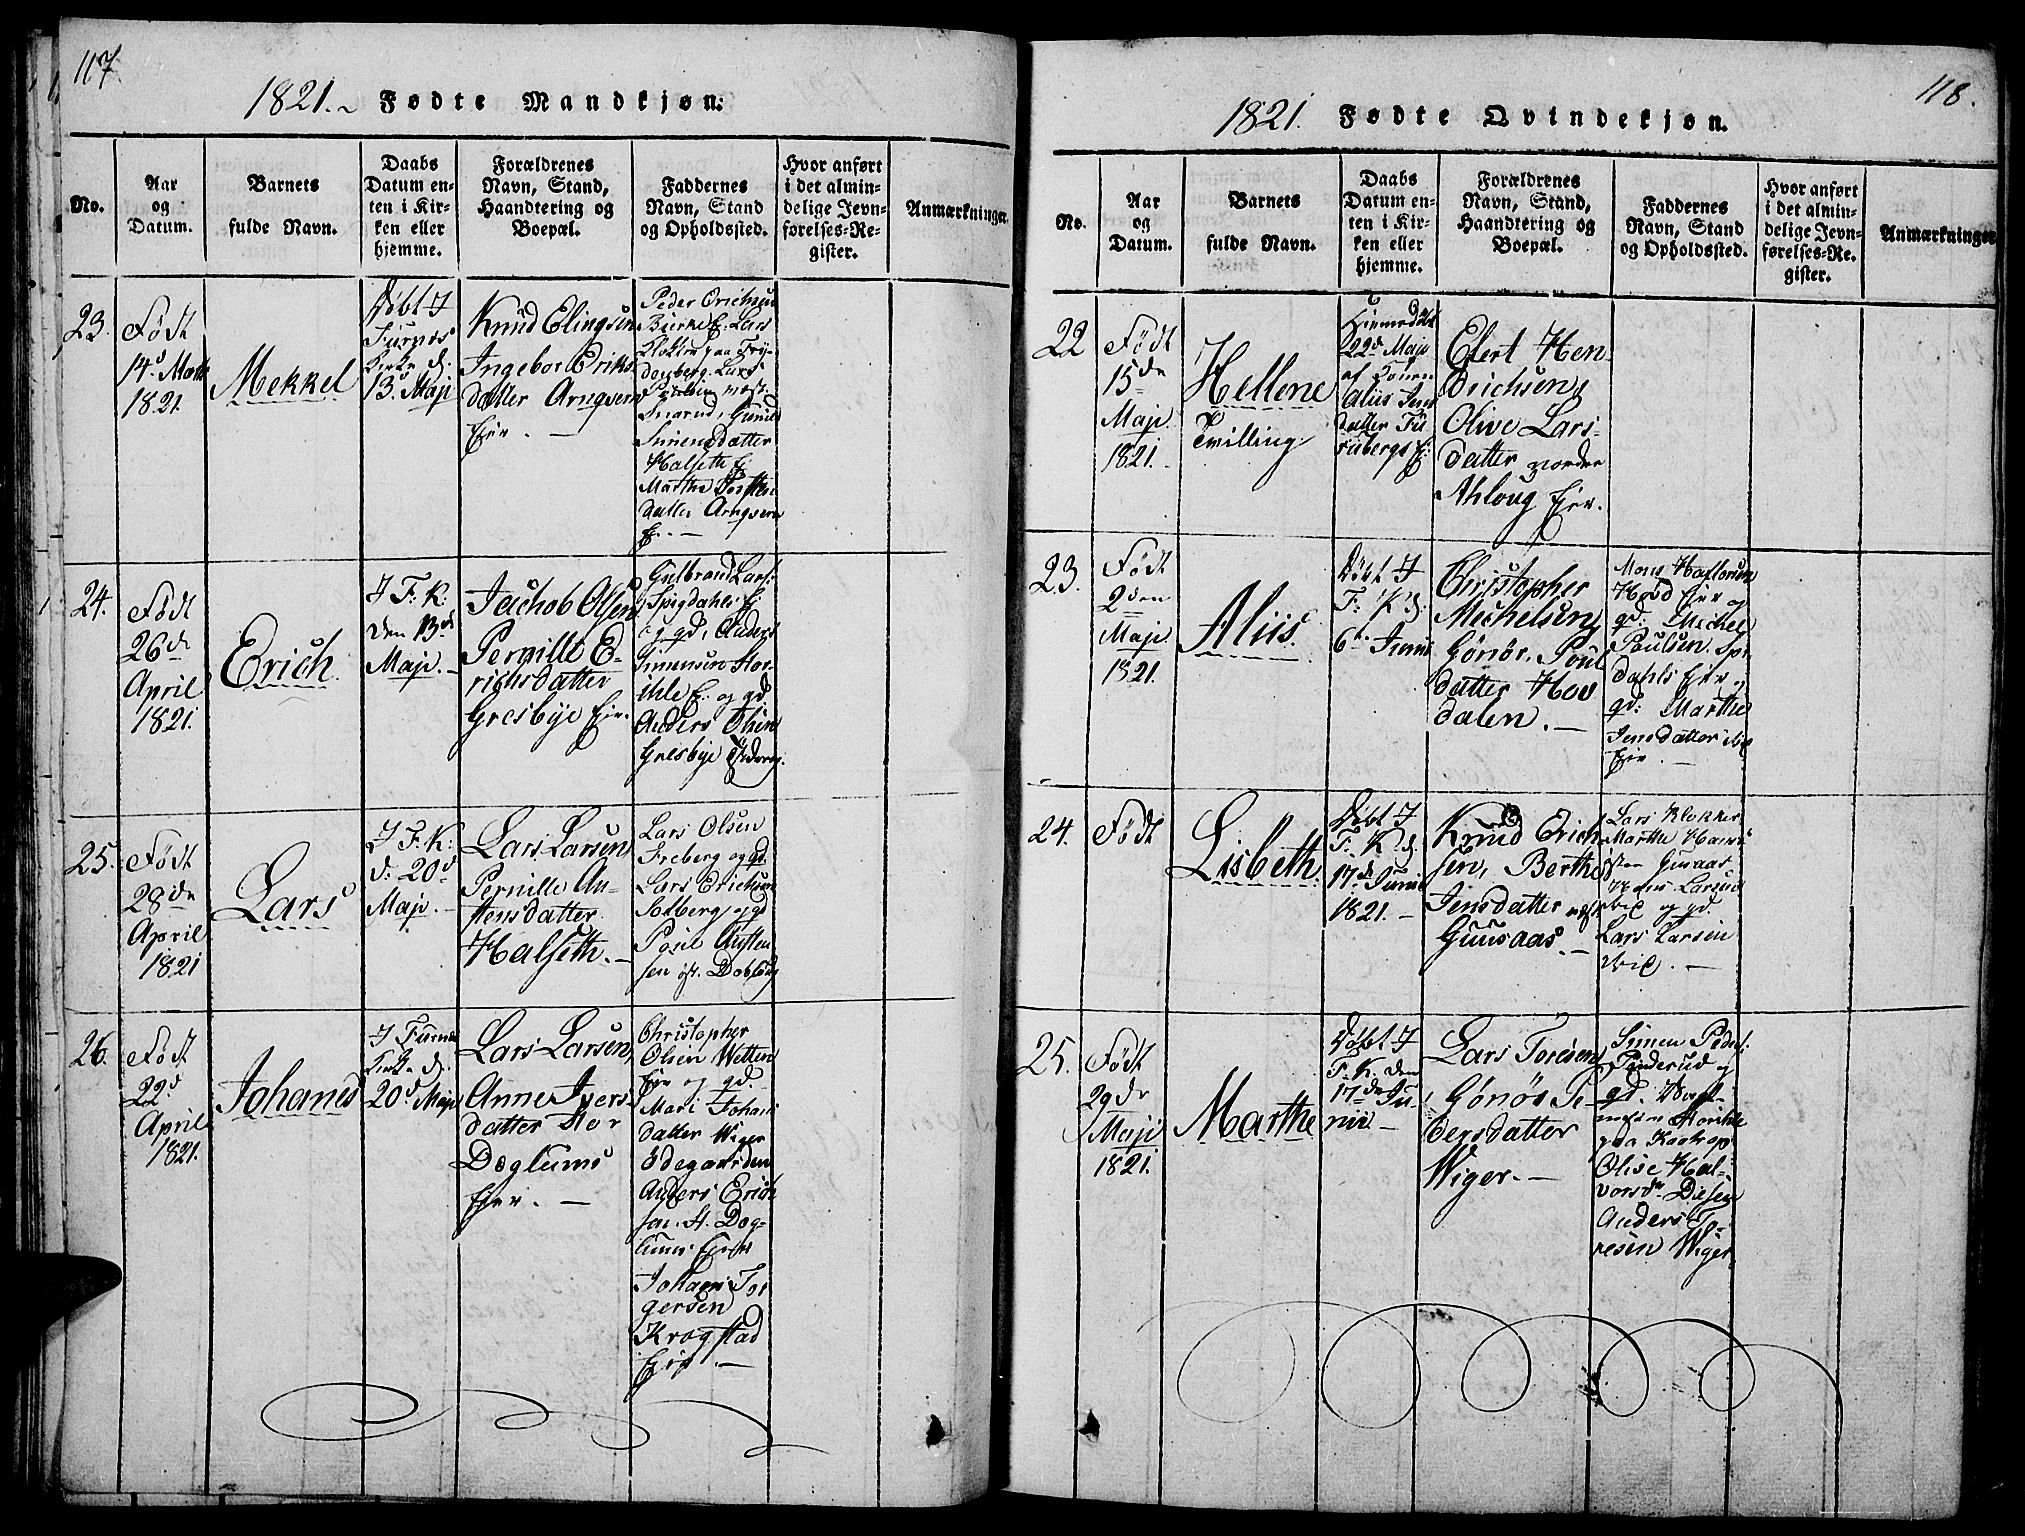 117.
1821. Fødte Mandkjøn.
No.
Aar
og
Datum.
Barnets
fulde Navn.
Daabs
Datum en-
ten i Kir-
ken eller
hjemme.
Forældrenes
Navn, Stand,
Haandtering og
Boepæl.
Faddernes
Navn, Stand
og Opholdssted.
Hvor anført
i det almin-
delige Jevn-
førelses-Re-
gister.
Anmærkninger.
23.
Født
14d Marts
1821.
Mekkel
Døbt I
Furnes
Kirke d:
13d Maji
Knud Elingsen
Ingebor Eriks
datter Arngvern
Eier. —
Peder Erichsen
Bierke E: Lars
Klokker paa Fry-
denberg. Lars
Gunild
Simensdatter
Halseth E:
Marthe Torsten
datter Arngvern
E. —
24.
Født
26de
April
1821.
Erich
I F: K:
den 13de
Maji. —
Jachob Olsen
Pernille E-
richsdatter
Gresbye Eier.
Gulbrand Lars:
Spigdahls E:
og gd, Anders
Simensen Stor-
ihle E. og gd
Anders Olsen
Gresbye
25.
Født
28de
April
1821
Lars
I F. K:
d: 20d
Maji. —
Lars Larsen
Pernille An-
stensdatter
Halseth. —
Lars Olsen
Freberg og gd.
Lars Erichsen
Solberg og gd
Poul Austen
sen øst. Dobloug
26.
Født
22d
April
1821.
Johanes
I Furnes
Kirke d.
20d Maji
Lars Larsen,
Anne Ivers
datter Stor
Døglums
Eier. —
Christopher
Olsen Wetten
Eier og gd.
Mari Johans
datter Wiger
Ødegaarden
Anders Erich
sen. St. Døg-
lums Eier
Johans Tor
gersen
Krogstad
Eier. —
118.
1821. Fødte Qvindekjøn.
No.
Aar
og
Datum.
Barnets
fulde Navn.
Daabs
Datum en-
ten i Kir-
ken eller
hjemme.
Forældrenes
Navn, Stand,
Haandtering og
Boepæl.
Faddernes
Navn, Stand
og Opholdssted.
Hvor anført
i det almin-
delige Jevn-
førelses-Re-
gister.
Anmærkninger
22
Født
15de
Maji
1821.
Hellene
Tvilling.
Hiemedøbt
22d Maji
af Jomfr
Aliis Jens
datter Fu
rubergs E:
Elert Hen-
drichsen,
Olive Lars-
datter nordre
Ahloug Eier.
23.
Født
2den
Maji
1821.
Aliis.
Døbt I
F: K d.
6te Junii
Christopher
Mechelsen,
Gønør. Poul
datter Hov
dalen. —
Mons Haftorsen
Hovd Eier og
gd: Mickel
Poulsen. Spi
dahls Eier og
gd: Marthe
Jensdatter ibd
Eier. —
24.
Født
Lisbeth
Døbt I
F: K d.
17de Junii
1821. —
Knud Erich
sen, Berthe
Jensdatter
Guusaas. —
Lars Klokker,
Marthe
Gusaas
Larsen
Vie og gd.
Lars Larsen
Vie. —
25.
Født
29de
Maji
1821.
Marthe
Døbt I
F. K. den
17de Ju-
nii —
Lars Toresen,
Gønør Pe-
dersdatter
Wiger. —
Simen Peders:
Pinderud og
gd.
paa Kaatorp
Olise Hal-
vorsdr Diesen
Anders To-
resen Wiger